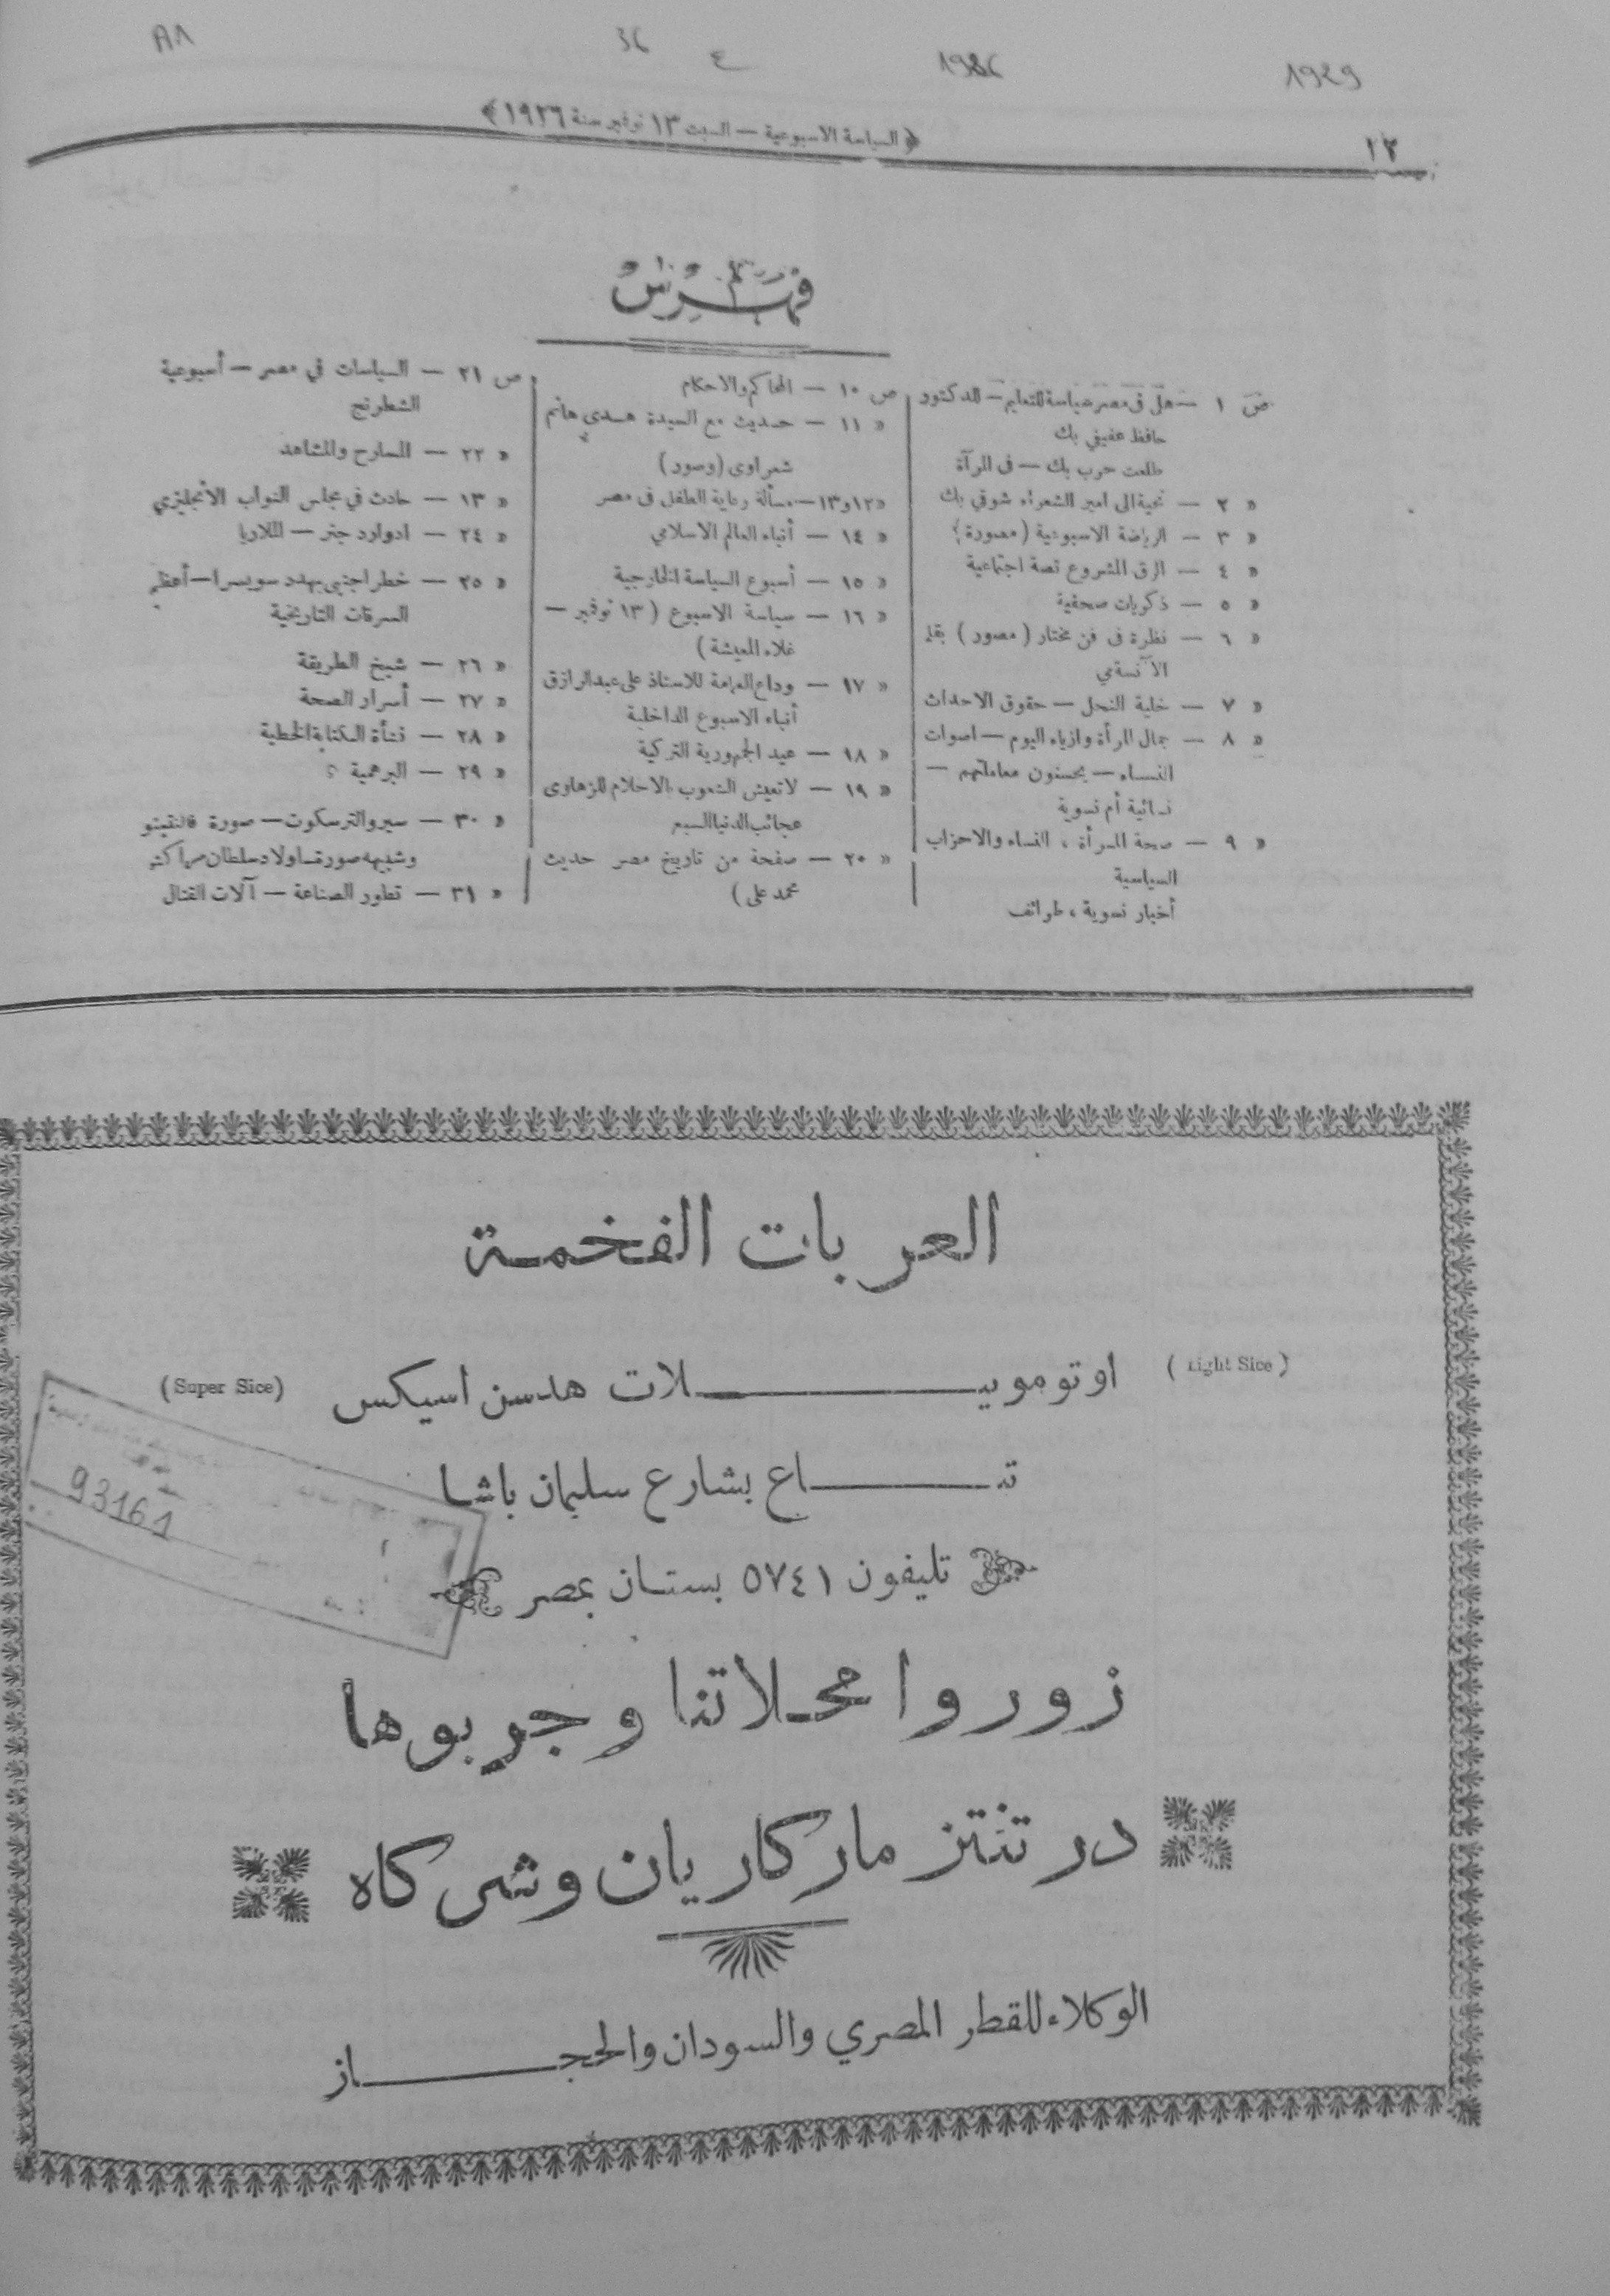 A1
36
ع
1926
1929
١٢
﴿ السياسة الاسبوعية — السبت ١٣ نوفمبر سنة ١٩٢٦ ﴾
فهرس
ص ١ — هل فى مصر سياسة للتعليم — للدكتور
حافظ عفيفي بك
طلعت حرب بك — فى المرآة
« ٢ — تحية الى امير الشعراء شوقي بك
« ٣ — الرياضة الاسبوعية ( مصورة )
« ٤ — الرق المشروع قصة اجتماعية
« ٥ — ذكريات صحفية
« ٦ — نظرة فى فن مختار ( مصور ) بقلم
الآنسة مي
« ٧ — خلية النحل — حقوق الاحداث
« ٨ — جمال المرأة وازياء اليوم — اصوات
النساء — يحسنون معاملتهم —
نسائية أم نسوية
« ٩ — صحة المرأة ، النساء والاحزاب
السياسية
أخبار نسوية ، طرائف
ص ١٠ — المحاكم والاحكام
« ١١ — حديث مع السيدة هدى هانم
شعراوى (وصور)
« ١٢و١٣ — مسألة رعاية الطفل فى مصر
« ١٤ — أنباء العالم الاسلامي
« ١٥ — أسبوع السياسة الخارجية
« ١٦ — سياسة الاسبوع ( ١٣ نوفمبر —
غلاء المعيشة )
« ١٧ — وداع العمامة للاستاذ على عبد الرازق
أنباء الاسبوع الداخلية
« ١٨ — عيد الجمهورية التركية
« ١٩ — لا تعيش الشعوب بالاحلام للزهاوى
عجائب الدنيا السبع
« ٢٠ — صفحة من تاريخ مصر حديث
محمد على )
ص ٢١ — السياسات في مصر — أسبوعية
الشطرنج
« ٢٢ — المسارح والمشاهد
« ١٣ — حادث في مجلس النواب الأنجليزي
« ٢٤ — ادوارد جنر — الملاريا
« ٢٥ — خطر اجنبى يهدد سويسرا — أعظم
السرقات التاريخية
« ٢٦ — شيخ الطريقة
« ٢٧ — أسرار الصحة
« ٢٨ — نشأة الكتابة الخطية
« ٢٩ — البرهمية
« ٣٠ — سير والترسكوت — صورة فالنتينو
وشبيهه صورة اولاد سلطان مراكش
« ٣١ — تطور الصناعة — آلات القتال
العربات الفخمة
( Light Sice )
اوتوموبيـــلات هدسن اسيكس
(Super Sice)
تبـــاع بشارع سليمان باشا
93161
تليفون ٥٧٤١ بستان بمصر
زوروا محلاتنا وجربوها
درتنتز ماركاريان وشركاه
الوكلاء للقطر المصري والسودان والحجـــاز